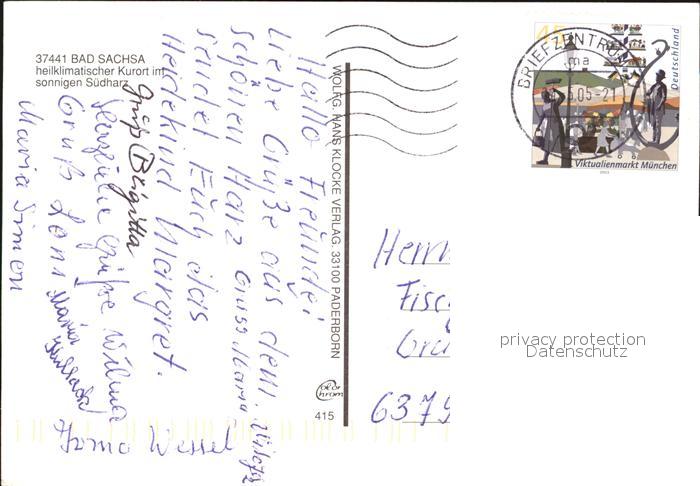 37441 BAD SACHSA
heilklimatischer Kurort im
sonnigen Südharz
Hallo Freunde!
Liebe Grüße aus dem
schönen Harz
sendet Euch das
Heidekind Margret.
Gruß Birgitta
Herzliche Grüße Wilma
Gruß Leni
Maria Simon
Gruss Maria
Maria
Wessel
WOLFG. HANS KLOCKE VERLAG, 33100 PADERBORN
color
chrom
415
45
Deutschland
Viktualienmarkt München
2003
BRIEFZENTRUM
ma
.05-21
66
Herrn
Fisc
Gra
6379
privacy protection
Datenschutz